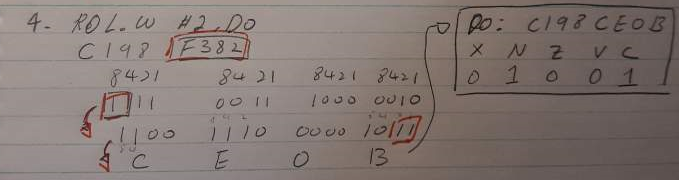 4- ROL.W #2.DO
C198 F382
8421 8421 8421 8421
1111 0011 1000 0010
1100 1110 0000 1011
C E O B
DO: C198 CEOB
X N Z V C
0 1 0 0 1